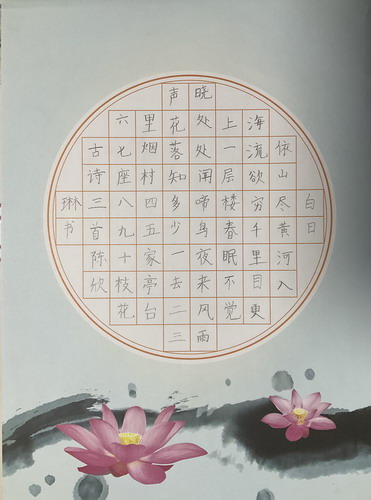 白日
依山尽黄河入
海流欲穷千里目更
上一层楼春眠不觉
晓处处闻啼鸟夜来风雨
声花落知多少一去二三
里烟村四五家亭台
六七座八九十枝花
古诗三首陈欣
琳书